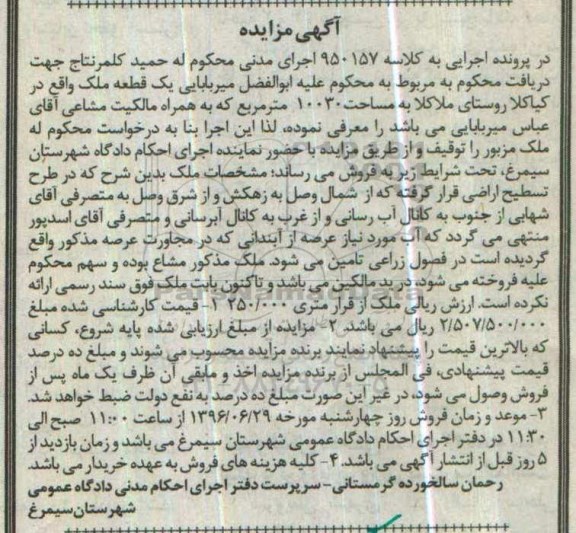 آگهی مزایده
در پرونده اجرایی به کلاسه ۹۵۰۱۵۷ اجرای مدنی محکوم له حمید کلمرنتاج جهت
دریافت محکوم به مربوط به محکوم علیه ابوالفضل میربابایی یک قطعه ملک واقع در
کیاکلا روستای ملاکلا به مساحت ۱۰۰۳۰ مترمربع که به همراه مالکیت مشاعی آقای
عباس میربابایی می باشد را معرفی نموده، لذا این اجرا بنا به درخواست محکوم له
ملک مزبور را توقیف و از طریق مزایده با حضور نماینده اجرای احکام دادگاه شهرستان
سیمرغ، تحت شرایط زیر به فروش می رساند؛ مشخصات ملک بدین شرح که در طرح
تسطیح اراضی قرار گرفته که از شمال وصل به زهکش و از شرق وصل به متصرفی آقای
شهابی از جنوب به کانال آب رسانی و از غرب به کانال آبرسانی و متصرفی آقای اسدپور
منتهی می گردد که آب مورد نیاز عرصه از آبندانی که در مجاورت عرصه مذکور واقع
گردیده است در فصول زراعی تامین می شود. ملک مذکور مشاع بوده و سهم محکوم
علیه فروخته می شود، در ید مالکین می باشد و تاکنون بابت ملک فوق سند رسمی ارائه
نکرده است. ارزش ریالی ملک از قرار متری ۲۵۰/۰۰۰ ۱- قیمت کارشناسی شده مبلغ
۲/۵۰۷/۵۰۰/۰۰۰ ریال می باشد. ۲- مزایده از مبلغ ارزیابی شده پایه شروع، کسانی
که بالاترین قیمت را پیشنهاد نمایند برنده مزایده محسوب می شوند و مبلغ ده درصد
قیمت پیشنهادی، فی المجلس از برنده مزایده اخذ و مابقی آن ظرف یک ماه پس از
فروش وصول می شود، در غیر این صورت مبلغ ده درصد به نفع دولت ضبط خواهد شد.
۳- موعد و زمان فروش روز چهارشنبه مورخه ۱۳۹۶/۰۶/۲۹ از ساعت ۱۱:۰۰ صبح الی
۱۱:۳۰ در دفتر اجرای احکام دادگاه عمومی شهرستان سیمرغ می باشد و زمان بازدید از
۵ روز قبل از انتشار آگهی می باشد. ۴- کلیه هزینه های فروش به عهده خریدار می باشد.
رحمان سالخورده گرمستانی- سرپرست دفتر اجرای احکام مدنی دادگاه عمومی
شهرستان سیمرغ